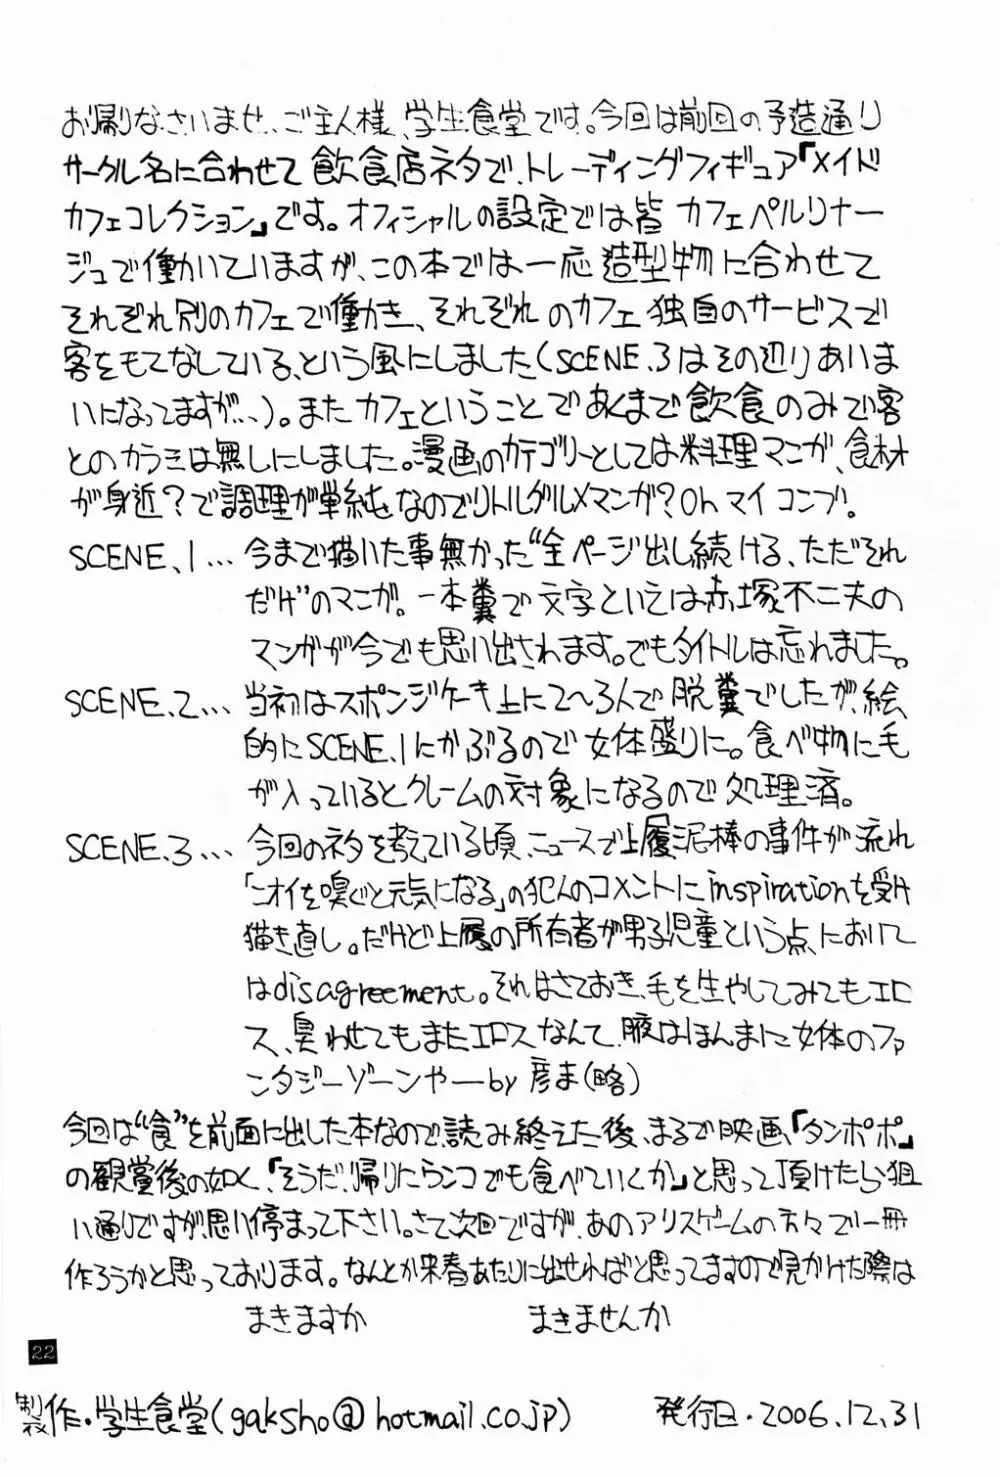 お帰りなさいませ、ご主人様、学生食堂です。今回は前回の予告通り
サークル名に合わせて飲食店ネタで、トレーディングフィギュア『メイド
カフェコレクション』です。オフィシャルの設定では皆 カフェペルリナー
ジュで働いていますが、この本では一応造型物に合わせて
それぞれ別のカフェで働き、それぞれのカフェ独自のサービスで
客をもてなしている、という風にしました(SCENE.3はその辺りあいま
いになってますが…)。またカフェということであくまで飲食のみで客
とのカラミは無しにしました。漫画のカテゴリーとしては料理マンガ、食材
が身近?で調理が単純なのでリトルグルメマンガ?Oh マイ コンブ。
SCENE.1… 今まで描いた事無かった“全ページ出し続ける、ただそれ
だけ”のマンガ。一本糞で文字といえば赤塚不二夫の
マンガが今でも思い出されます。でもタイトルは忘れました。
SCENE.2… 当初はスポンジケーキ上に2～3人で脱糞でしたが、絵
的にSCENE.1にかぶるので女体盛りに。食べ物に毛
が入っているとクレームの対象になるので処理済。
SCENE.3… 今回のネタを考えている頃、ニュースで上履泥棒の事件が流れ
「ニオイを嗅ぐと元気になる」の犯人のコメントにinspirationを受け
描き直し。だけど上履の所有者が男子児童という点において
はdisagreement。それはさておき、毛を生やしてみてもエロ
ス、臭わせてもまたエロスなんて、腋はほんまに女体のファ
ンタジーゾーンやーby 彦ま(略)
今回は“食”を前面に出した本なので、読み終えた後、まるで映画、『タンポポ』
の観賞後の如く、「そうだ、帰りにウンコでも食べていくか」と思って頂けたら狙
い通りですが、思い停まって下さい。さて次回ですが、あのアリスゲームの方々で一冊
作ろうかと思っております。なんとか来春あたりに出せればと思ってますので見かけた際は
まきますか まきませんか
22
製作・学生食堂(gaksho@hotmail.co.jp) 発行日・2006.12.31